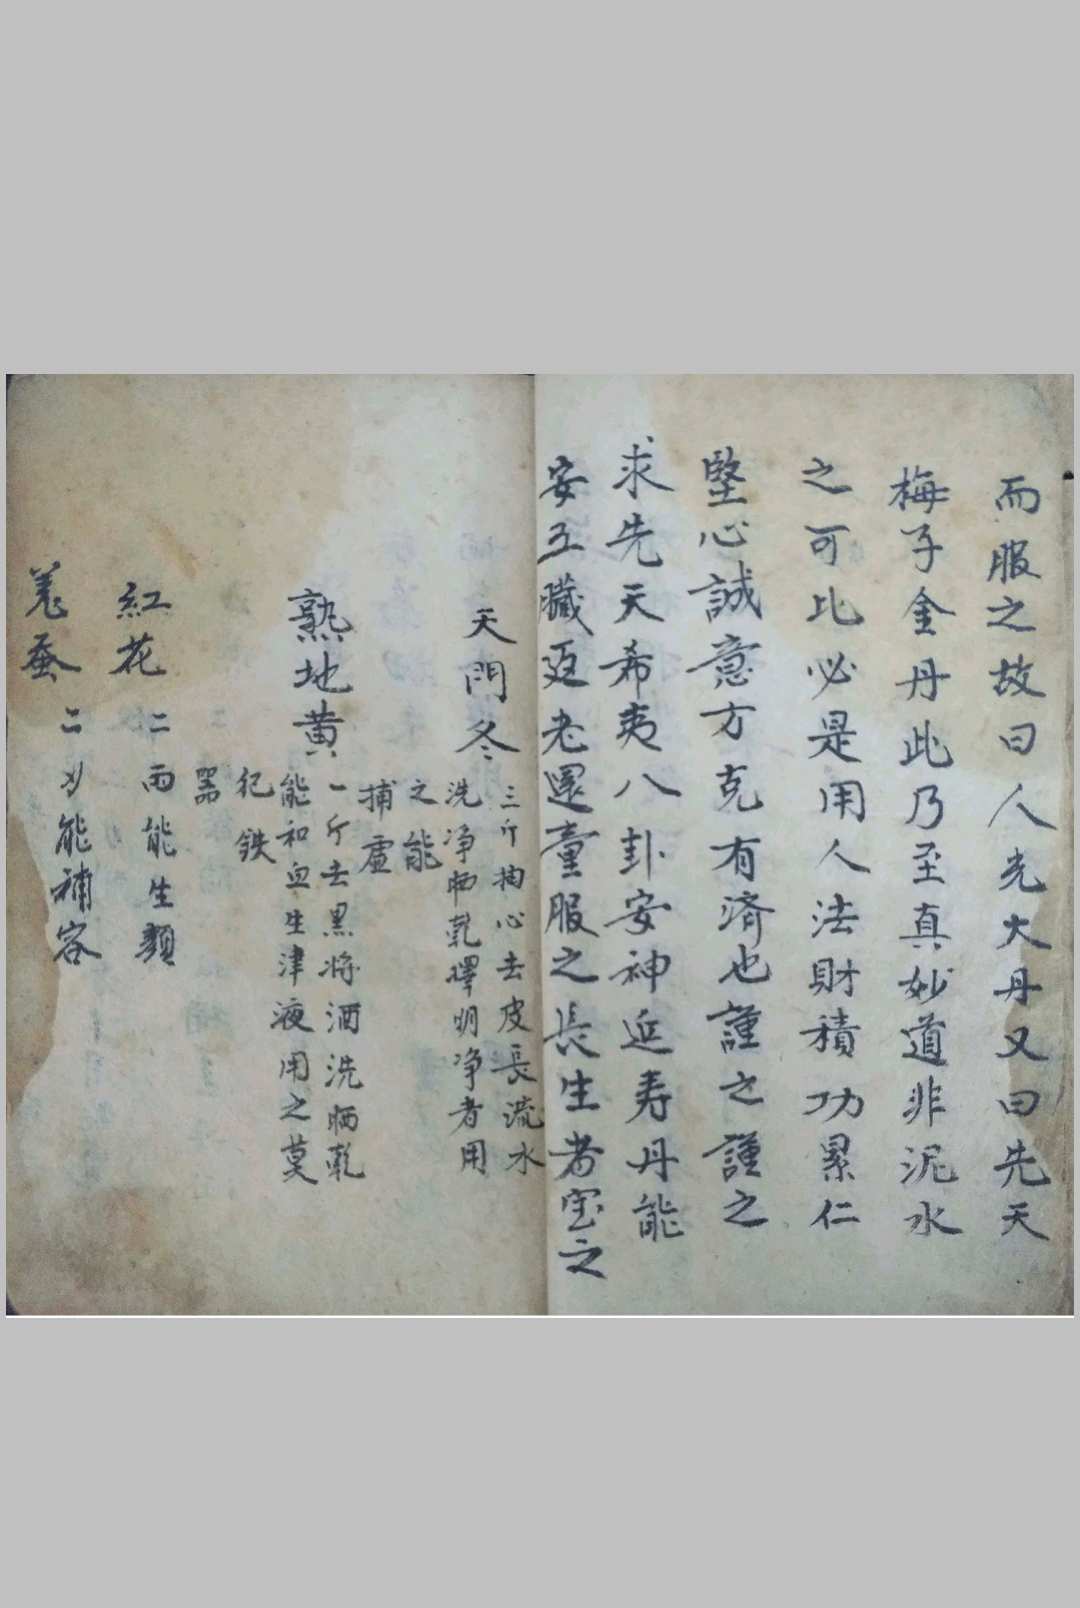 而服之故曰人光大丹又曰先天
梅子金丹此乃至真妙道非泥水
之可比必是用人法財積功累仁
堅心誠意方克有済也謹之謹之
求先天希夷八卦安神延寿丹能
安五臓返老還童服之長生者宝之
天門冬
三斤抽心去皮長流水
洗净晒乾擇明净者用
之能
捕虛
熟地黄
一斤去黒将酒洗晒乾
能和血生津液用之莫
犯鉄
器
紅花 二両能生顏
姜蚕 二刄能補容